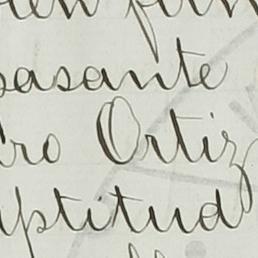 pasante
dro Ortiz
aptitud